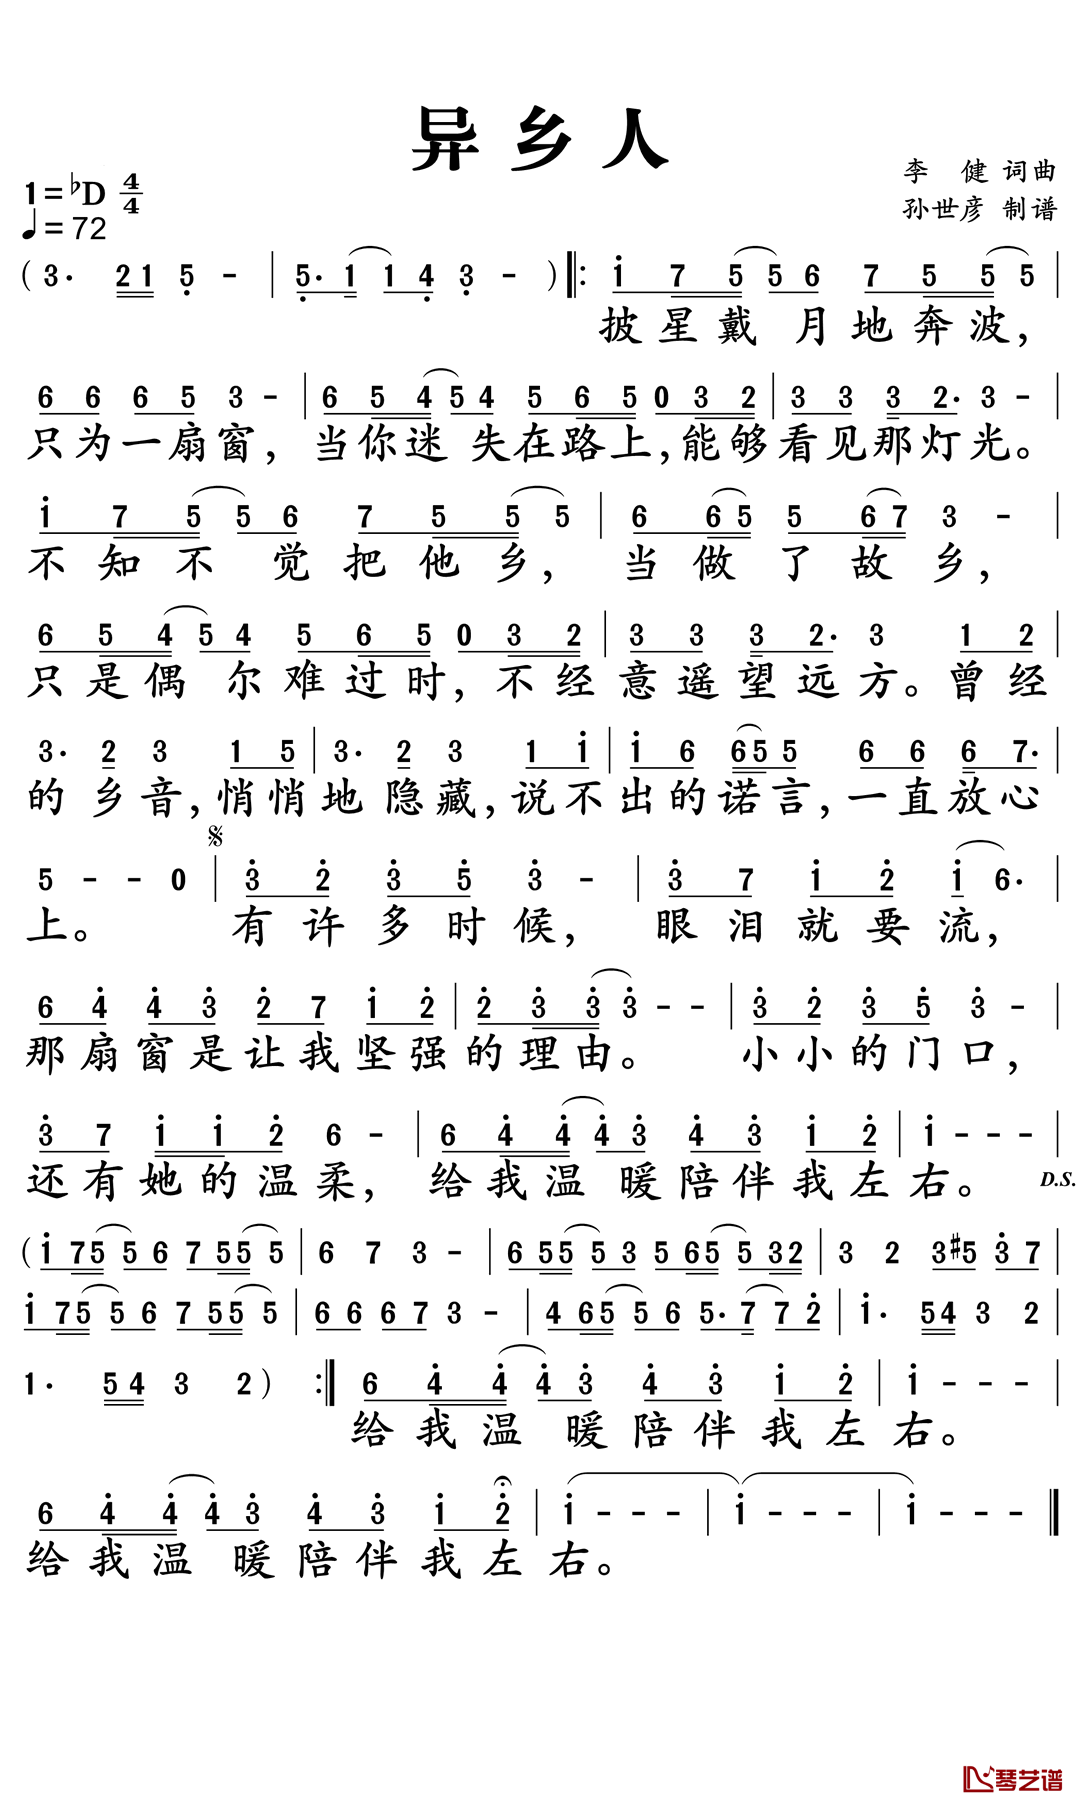 异乡人
李 健 词曲
1=♭D 4/4
孙世彦 制谱
♩= 72
( 3· 2 1 5 - | 5· 1 1 4 3 - ) ‖: 1 7 5 5 6 7 5 5 5 |
披星戴 月地奔波，
6 6 6 5 3 - | 6 5 4 5 4 5 6 5 0 3 2 | 3 3 3 2· 3 - |
只为一扇窗，当你迷 失在路上，能够看见那灯光。
1 7 5 5 6 7 5 5 5 | 6 6 5 5 6 7 3 - |
不知不 觉把他乡， 当做了故乡，
6 5 4 5 4 5 6 5 0 3 2 | 3 3 3 2· 3 1 2 |
只是偶 尔难过时，不经意遥望远方。曾经
3· 2 3 1 5 | 3· 2 3 1 1 | 1 6 6 5 5 6 6 6 7· |
的乡音，悄悄地隐藏，说不出的诺言，一直放心
𝄋
5 - - 0 | 3 2 3 5 3 - | 3 7 1 2 1 6· |
上。 有许多时候， 眼泪就要流，
6 4 4 3 2 7 1 2 | 2 3 3 3 - - | 3 2 3 5 3 - |
那扇窗是让我坚强的理由。 小小的门口，
3 7 1 1 2 6 - | 6 4 4 4 3 4 3 1 2 | 1 - - - |
还有她的温柔， 给我温 暖陪伴我左右。 D.S.
( 1 7 5 5 6 7 5 5 5 | 6 7 3 - | 6 5 5 5 3 5 6 5 5 3 2 | 3 2 3 #5 3 7 |
1 7 5 5 6 7 5 5 5 | 6 6 6 7 3 - | 4 6 5 5 6 5· 7 7 2 | 1· 5 4 3 2 |
1· 5 4 3 2 ) :‖ 6 4 4 4 3 4 3 1 2 | 1 - - - |
给我温 暖陪伴我左右。
6 4 4 4 3 4 3 1 2 | 1 - - - | 1 - - - | 1 - - - ‖
给我温 暖陪伴我左右。
琴艺谱